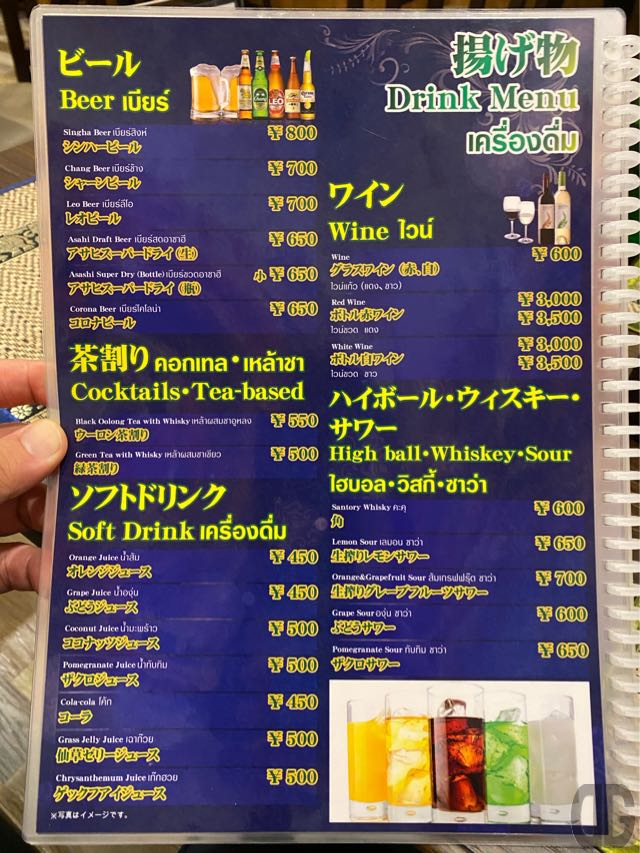 ビール
Beer เบียร์
Singha Beer เบียร์สิงห์
シンハービール
¥ 800
Chang Beer เบียร์ช้าง
シャーンビール
¥ 700
Leo Beer เบียร์ลีโอ
レオビール
¥ 700
Asahi Draft Beer เบียร์สดอาซาฮี
アサヒスーパードライ (生)
¥ 650
Asashi Super Dry (Bottle) เบียร์ขวดอาซาฮี
アサヒスーパードライ (瓶)
小 ¥ 650
Corona Beer เบียร์โคโลน่า
コロナビール
¥ 650
茶割り คอกเทล・เหล้าชา
Cocktails・Tea-based
Black Oolong Tea with Whisky เหล้าผสมชาอูหลง
ウーロン茶割り
¥ 550
Green Tea with Whisky เหล้าผสมชาเขียว
緑茶割り
¥ 500
ソフトドリンク
Soft Drink เครื่องดื่ม
Orange Juice น้ำส้ม
オレンジジュース
¥ 450
Grape Juice น้ำองุ่น
ぶどうジュース
¥ 450
Coconut Juice น้ำมะพร้าว
ココナッツジュース
¥ 500
Pomegranate Juice น้ำทับทิม
ザクロジュース
¥ 500
Cola-cola โค้ก
コーラ
¥ 450
Grass Jelly Juice เฉาก๊วย
仙草ゼリージュース
¥ 500
Chrysanthemum Juice เก๊กฮวย
ゲックフアイジュース
¥ 500
※写真はイメージです。
揚げ物
Drink Menu
เครื่องดื่ม
ワイン
Wine ไวน์
Wine
グラスワイン (赤、白)
ไวน์แก้ว (แดง, ขาว)
¥ 600
Red Wine
ボトル赤ワイン
ไวน์ขวด แดง
¥ 3,000
¥ 3,500
White Wine
ボトル白ワイン
ไวน์ขวด ขาว
¥ 3,000
¥ 3,500
ハイボール・ウィスキー・
サワー
High ball・Whiskey・Sour
ไฮบอล・วิสกี้・ซาว่า
Santory Whisky คะคุ
角
¥ 600
Lemon Sour เลมอน ซาว่า
生搾りレモンサワー
¥ 650
Orange&Grapefruit Sour ส้มเกรฟฟรุ๊ต ซาว่า
生搾りグレープフルーツサワー
¥ 700
Grape Sour องุ่น ซาว่า
ぶどうサワー
¥ 600
Pomegranate Sour ทับทิม ซาว่า
ザクロサワー
¥ 650